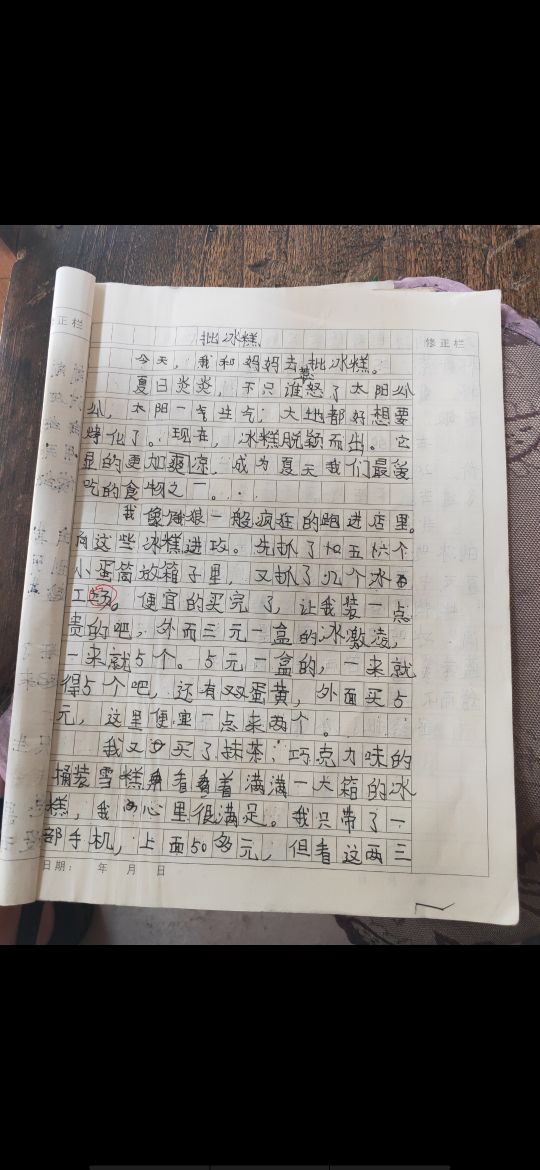 正栏
修正栏
批冰糕
今天,我和妈妈去批冰糕。
夏日炎炎,不只谁惹怒了太阳公
公,太阳一气生气,大地都好想要
烽化了。现在,冰糕脱颖而出。它
显的更加爽凉,成为夏天我们最爱
吃的食物之一。
我像饿狼一般疯狂的跑进店里。
向这些冰糕进攻。先抓了如五六个
小蛋筒放箱子里,又抓了几个冰
工场。便宜的买完了,让我装一点
贵的吧,外面三元一盒的冰激凌,
一来就5个。5元一盒的,一来就
得5个吧,还有双蛋黄,外面买5
元,这里便宜一点来两个。
我又买了抹茶,巧克力味的
桶装雪糕看着满满一大箱的冰
糕,我的心里很满足。我只带了一
部手机,上面50多元,但看这两三
日期: 年 月 日